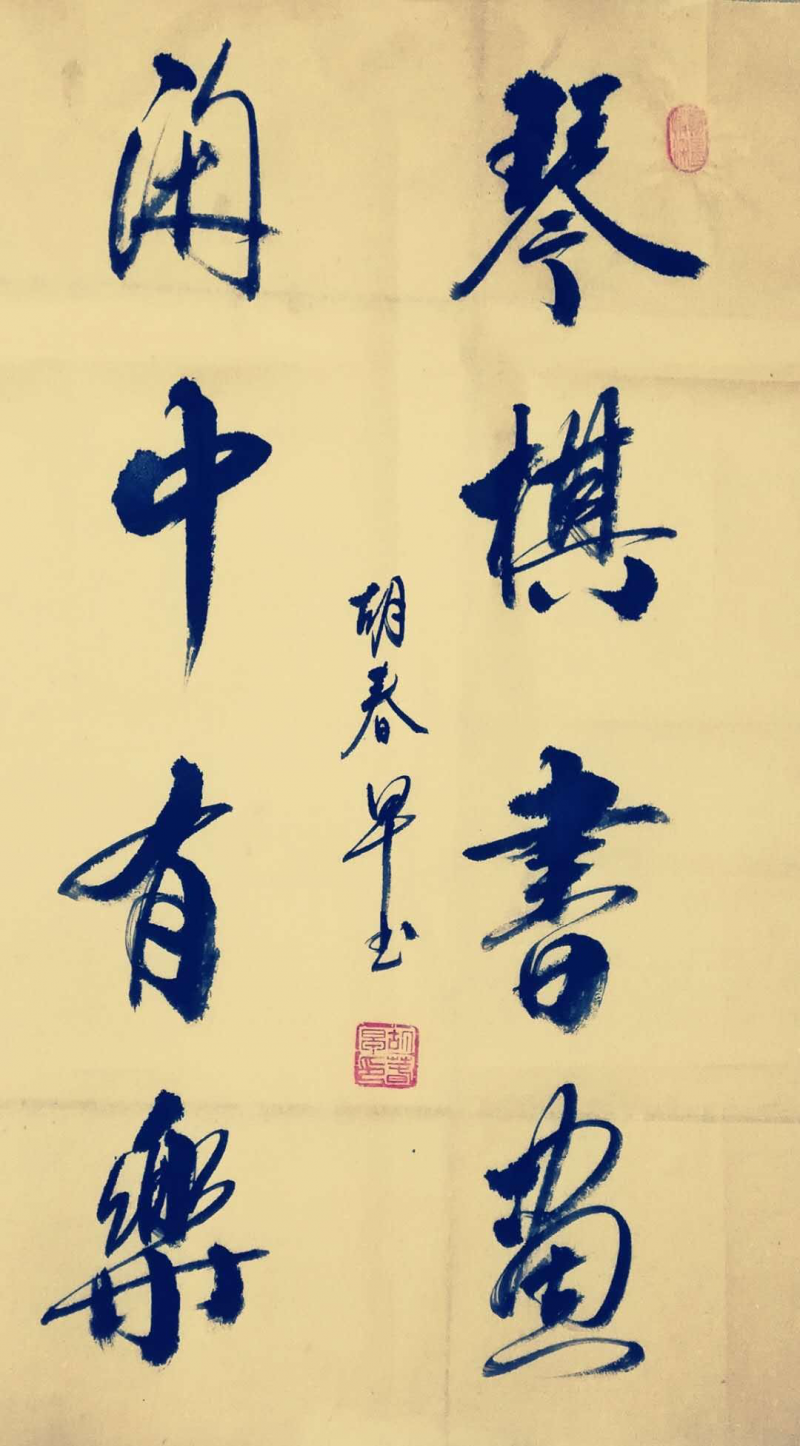 琴棋書畫
闲中有樂
胡春早书
胡春早印